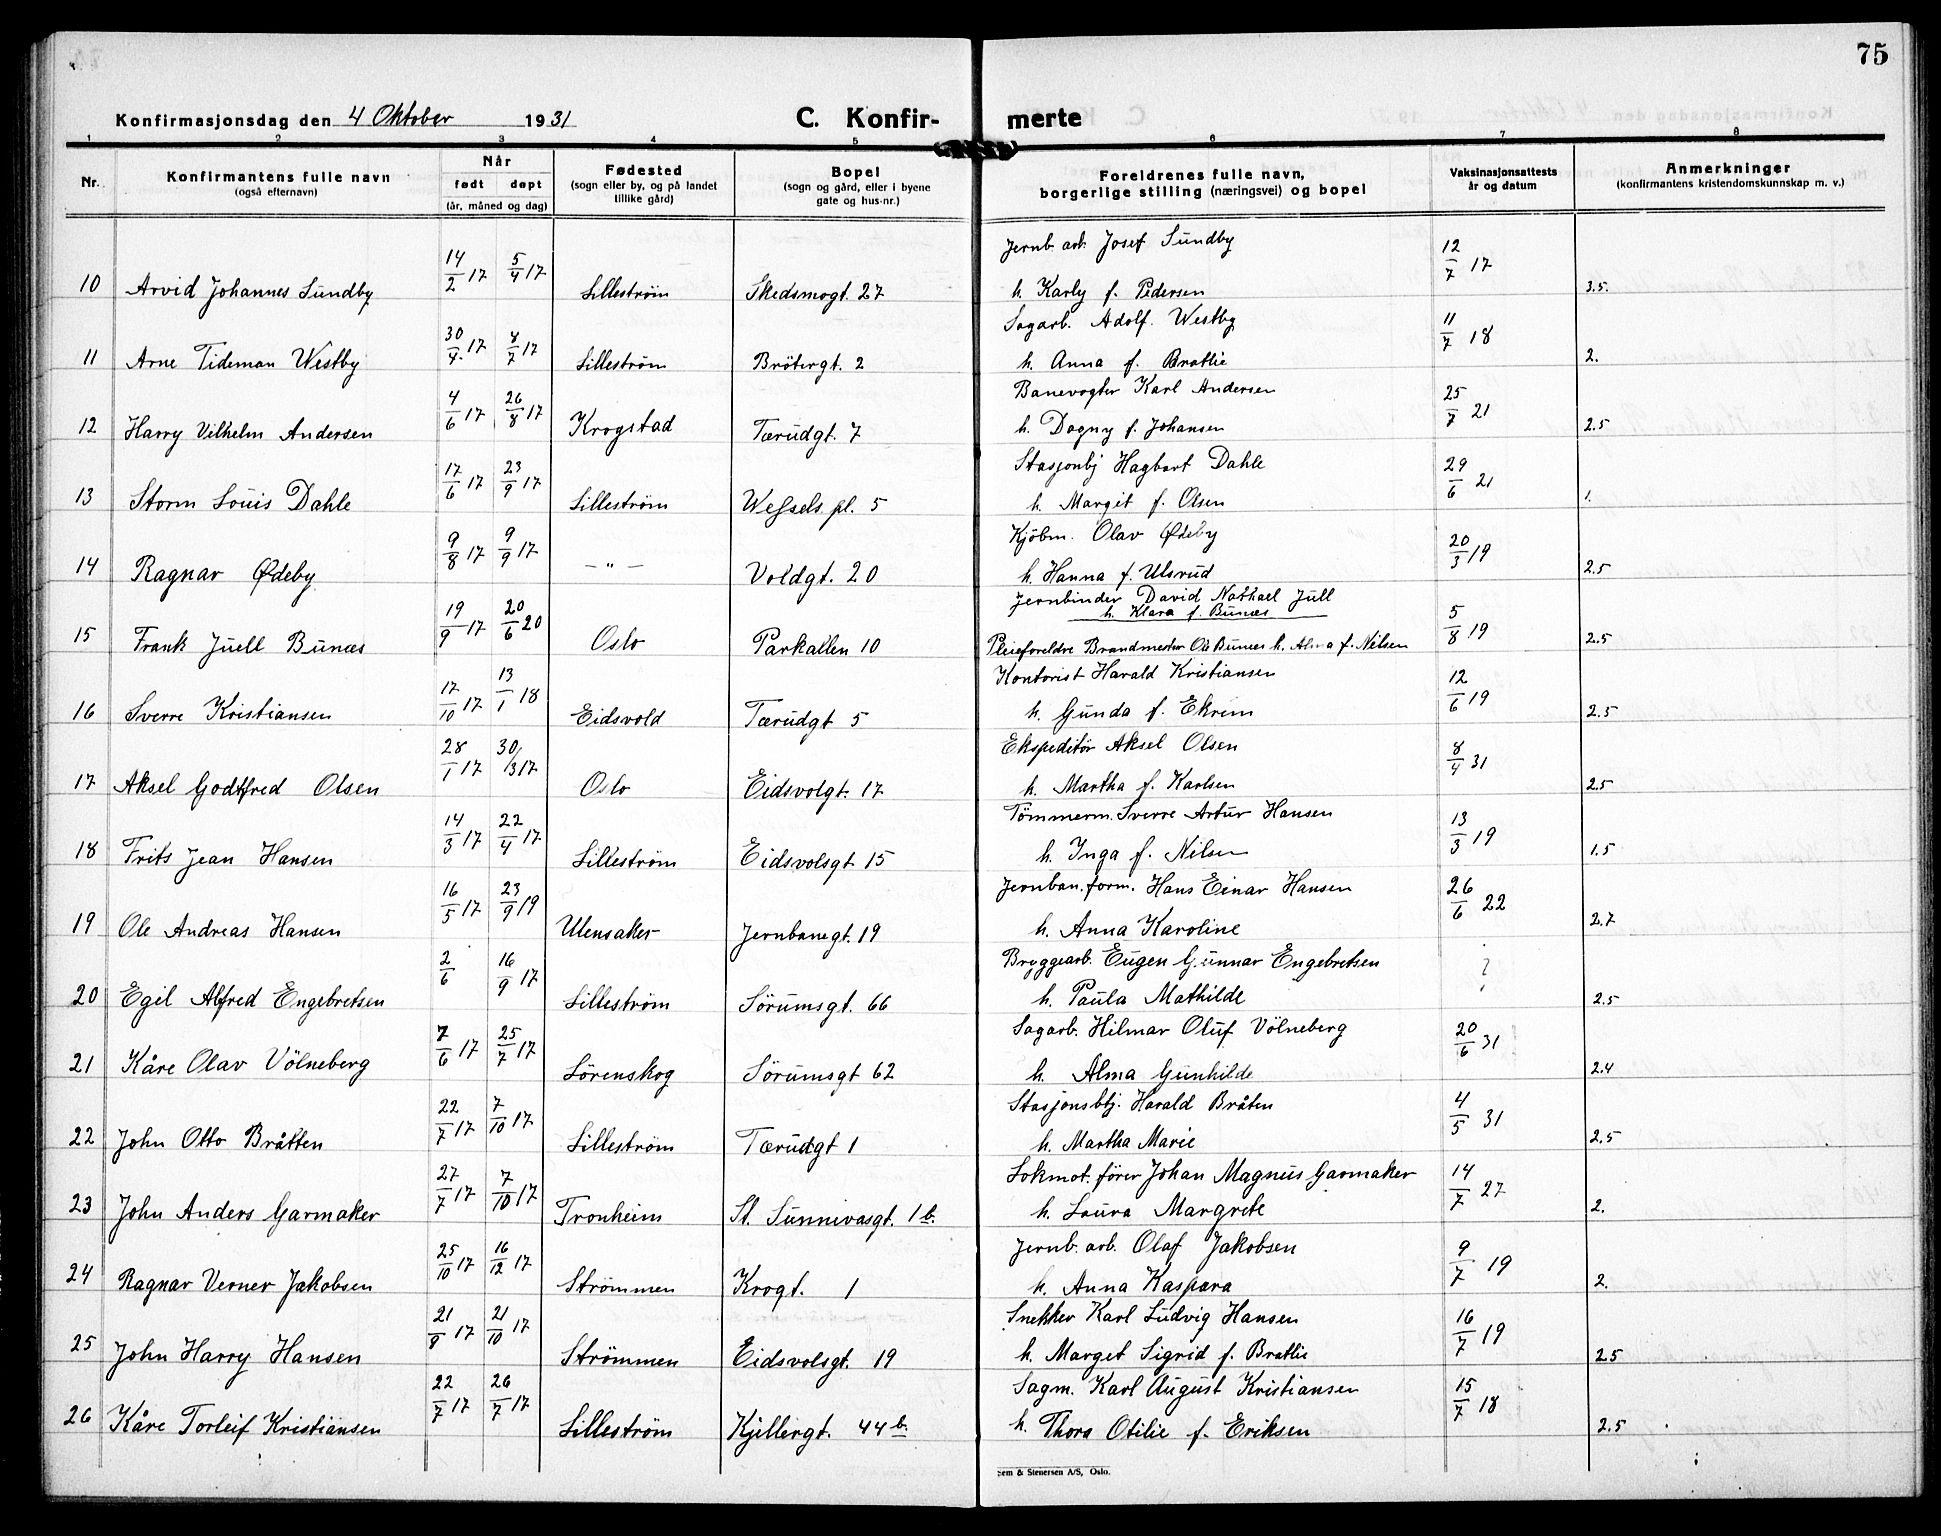 75
Konfirmasjonsdag den 4 Oktober 1931 C. Konfir- merte
1 2 3 4 5 6 7 8
Nr. Konfirmantens fulle navn (også efternavn) Når født døpt (år, måned og dag) Fødested (sogn eller by, og på landet tillike gård) Bopel (sogn og gård, eller i byene gate og hus-nr.) Foreldrenes fulle navn, borgerlige stilling (næringsvei) og bopel Vaksinasjonsattests år og datum Anmerkninger (konfirmantens kristendomskunnskap m. v.)
14/2 17 5/4 17 Jernb. arb. Josef Sundby 12/7 17
10 Arvid Johannes Sundby Lilleström Skedsmogt. 27 h. Karly f. Pedersen 3.5.
30/4 17 8/7 17 Sagarb. Adolf. Westby 11/7 18
11 Arne Tideman Westby Lilleström Brötergt. 2 h. Anna f. Bratlie 2.
4/6 17 26/8 17 Banevogter Karl Andersen 25/7 21
12 Harry Vilhelm Andersen Krogstad Tærudgt. 7 h. Dagny f. Johansen 2.5
17/6 17 23/9 17 Stasjonbj Hagbart Dahle 29/6 21
13 Storm Louis Dahle Lilleström Wessels pl. 5 h. Margit f. Olsen 1.
9/8 17 9/9 17 Kjöbm. Olav Ødeby 20/3 19
14 Ragnar Ødeby — " — Voldgt. 20 h. Hanna f. Ulsrud 2.5
19/9 17 20/6 20 Jernbinder David Nathael Jull
h. Klara f. Bunæs 5/8 19
15 Frank Juell Bunæs Oslo Parkallen 10 Pleieforeldre Brandmester Ole Bunæs h. Alma f. Nilsen 2.5
17/10 17 13/1 18 Kontorist Harald Kristiansen 12/6 19
16 Sverre Kristiansen Eidsvold Tærudgt 5 h. Gunda f. Ekrem 2.5
28/1 17 30/3 17 Ekspeditör Aksel Olsen 8/4 31
17 Aksel Godtfred Olsen Oslo Eidsvolgt. 17 h. Martha f. Karlsen 2.5
14/3 17 22/4 17 Tömmerm. Sverre Artur Hansen 13/3 19
18 Frits Jean Hansen Lilleström Eidsvolsgt. 15 h. Inga f. Nilsen 1.5
16/5 17 23/9 19 Jernban. form. Hans Einar Hansen 26/6 22
19 Ole Andreas Hansen Ulensaker Jernbanegt. 19 h. Anna Karoline 2.7
2/6 16/9 17 Bryggearb. Eugen Gunnar Engebretsen ?
20 Egil Alfred Engebretsen Lilleström Sörumsgt. 66 h. Paula Mathilde 2.5
7/6 17 25/7 17 Sagarb. Hilmar Oluf Völneberg 20/6 31
21 Kåre Olav Völneberg Lörenskog Sörumsgt 62 h. Alma Gunhilde 2.4
22/7 17 7/10 17 Stasjonsbtj. Harald Bråten 4/5 31
22 John Otto Bråtten Lilleström Tærudgt 1 h. Martha Marie 2.5
27/7 17 7/10 17 Lokmot. förer Johan Magnus Garmaker 14/7 27
23 John Anders Garmaker Tronheim St. Sunnivasgt. 1 b. h. Laura Margrete 2.
25/10 17 16/12 17 Jernb. arb. Olaf Jakobsen 9/7 19
24 Ragnar Verner Jakobsen Strömmen Krogt. 1 h. Anna Kaspara 2.
21/8 17 21/10 17 Snekker Karl Ludvig Hansen 16/7 19
25 John Harry Hansen Strömmen Eidsvolsgt. 19 h. Marget Sigrid f. Bratlie 2.5
22/7 17 26/7 17 Sagm. Karl August Kristiansen 15/7 18
26 Kåre Torleif Kristiansen Lilleström Kjellergt. 44 b. h. Thora Otilie f. Eriksen 2.5
Sem & Stenersen A/S, Oslo.